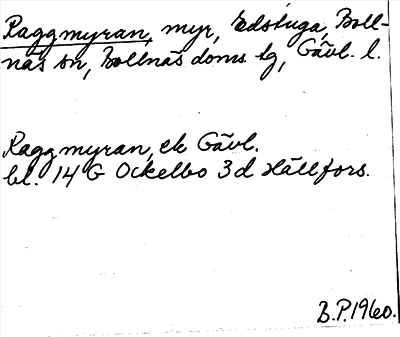 Raggmyran, myr, Edstuga, Boll-
näs sn, Bollnäs doms. tg, Gävl. l.
Raggmyran, ek Gävl.
bl. 14 G Ockelbo 3d Hällfors.
B.P.1960.